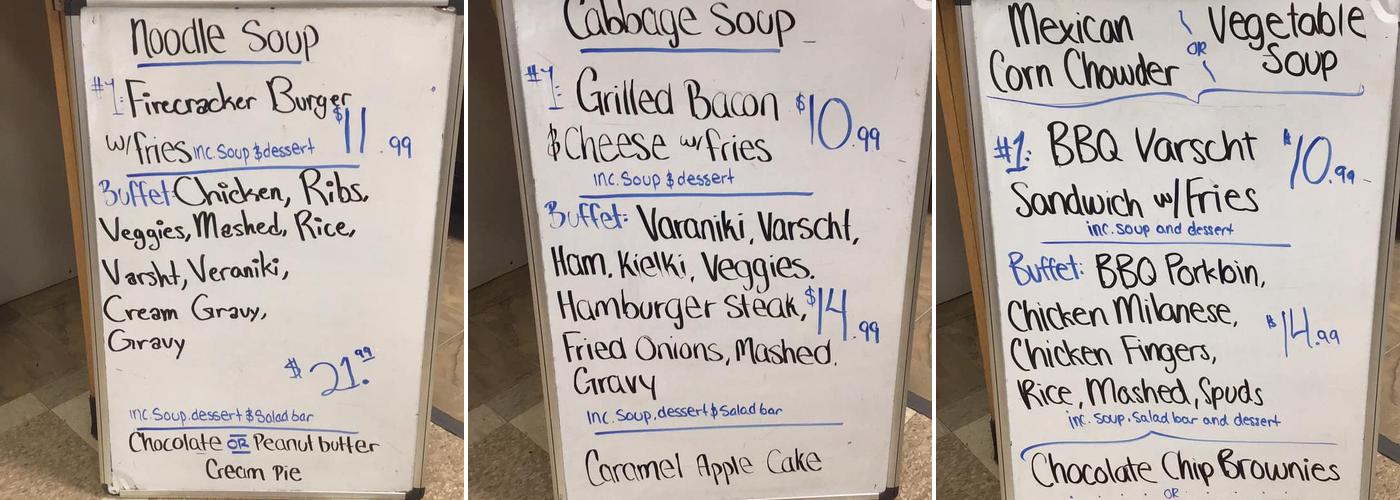 Noodle Soup
#1: Firecracker Burger
w/fries inc. Soup & dessert $11.99
Buffet Chicken, Ribs,
Veggies, Mashed, Rice,
Varsht, Veraniki,
Cream Gravy,
Gravy
$21.99
inc. Soup, dessert & Salad bar
Chocolate OR Peanut butter
Cream Pie
Cabbage Soup
#1: Grilled Bacon $10.99
& Cheese w/fries
inc. Soup & dessert
Buffet: Varaniki, Varscht,
Ham, Kielki, Veggies.
Hamburger Steak, $14.99
Fried Onions, Mashed.
Gravy
Inc. Soup, dessert & Salad bar
Caramel Apple Cake
Mexican OR Vegetable
Corn Chowder Soup
#1: BBQ Varscht $10.99
Sandwich w/Fries
inc. Soup and dessert
Buffet: BBQ Porkloin,
Chicken Milanese, $14.99
Chicken Fingers,
Rice, Mashed, Spuds
inc. Soup, Salad bar and dessert
Chocolate Chip Brownies
OR